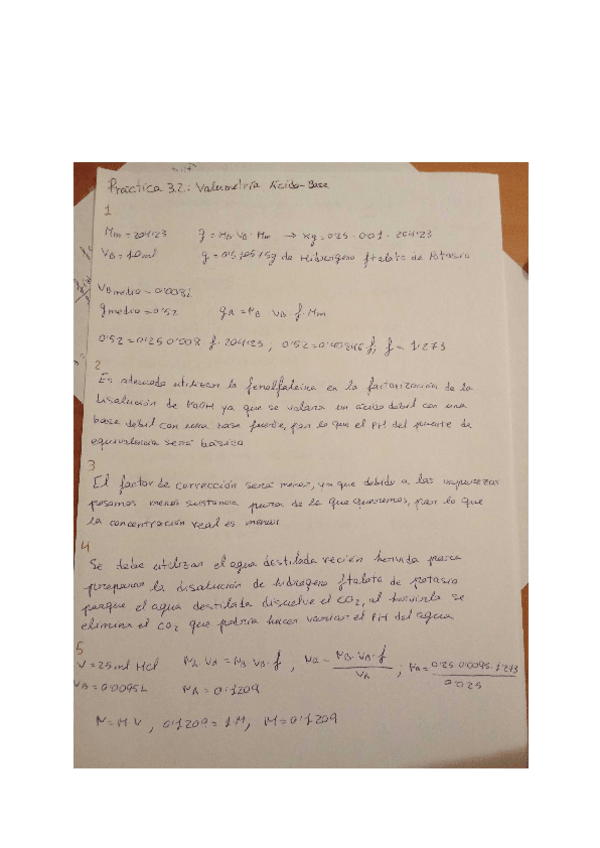 Práctica 3.2: Valumetría Ácido-Base
1
Mm = 204'23 g = NB·VB·Mm → xg = 0'25·0'01·204'23
VB = 10ml g = 0'510575g de Hidrógeno ftalato de Potasio
VB medio = 0'008L
g medio = 0'52 gA = NB VB·f·Mm
0'52 = 0'25 0'008 f·204'23 , f = 1'273
2
Es adecuado utilizar la fenolftaleina en la factorización de la
disolución de NaOH ya que se valora un ácido debil con una
base debil con una base fuerte, por lo que el PH del punto de
equivalencia será básico.
3
El factor de corrección será menor, ya que debido a las impurezas
pesamos menos sustancia pura de la que queremos, por lo que
la concentración real es menor
4
Se debe utilizar el agua destilada recien hervida para
preparar la disolución de hidrógeno ftalato de potasio
porque el agua destilada disuelve el CO2, al hervirla se
elimina el CO2 que podría hacer variar el PH del agua
5
V = 25ml Hcl NA·VA = NB·VB·f , = NB·VB·f / VA ; NA = 0'25·0'0095·1'273 / 0'025
VB = 0'0095L NA = 0'1209
N = M V , 0'1209 = 1M, M = 0'1209